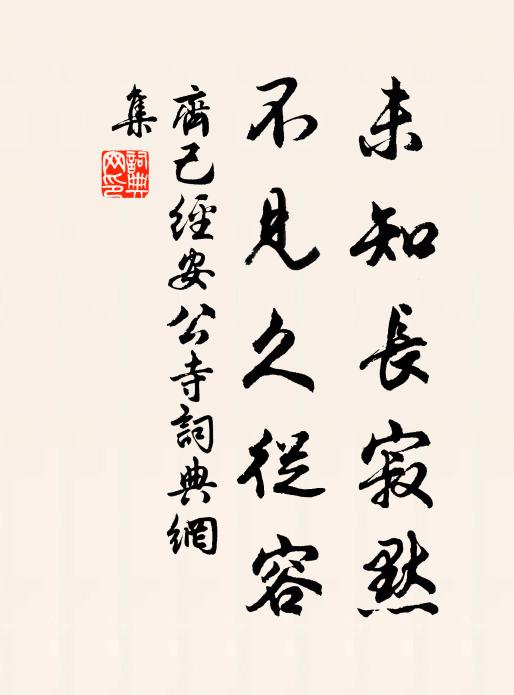 未知長寂默
不見久從容
齊己經安公寺詞典網
集
詞典
网印